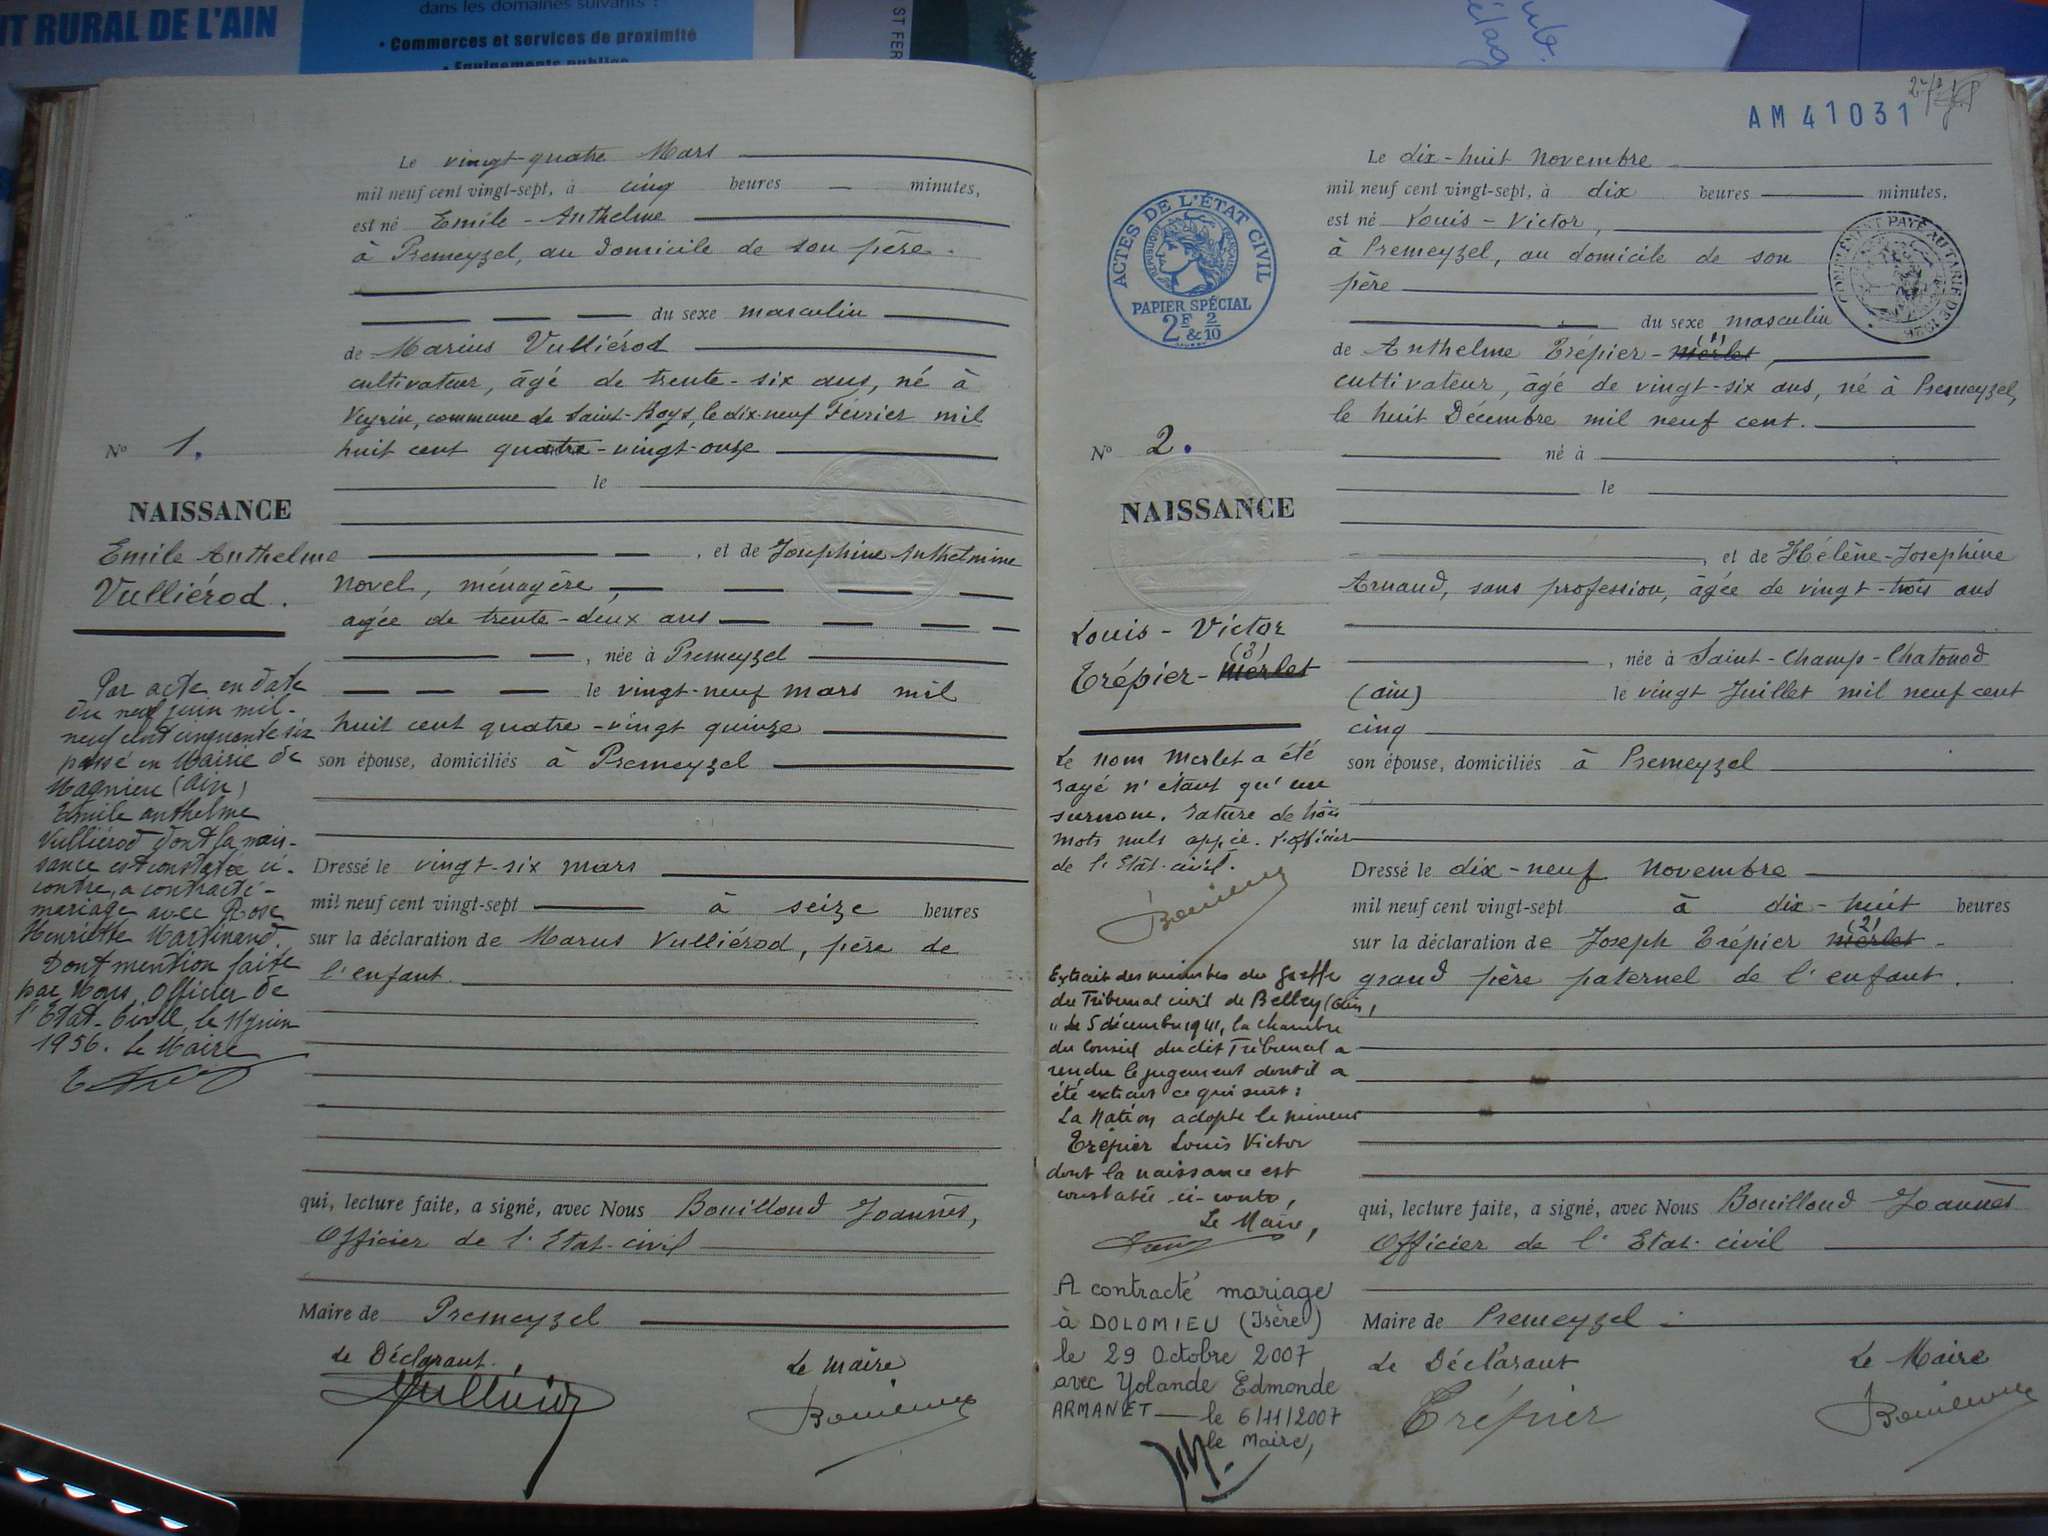 NT RURAL DE L'AIN
dans les domaines suivants :
• Commerces et services de proximité
• Equipements publics
ST FER
Le vingt-quatre Mars
mil neuf cent vingt-sept, à cinq heures — minutes,
est né Emile - Anthelme
à Premeyzel, au domicile de son père.
du sexe masculin
de Marius Vulliérod
cultivateur, âgé de trente-six ans, né à
Veyrin, commune de Saint-Boys, le dix-neuf Février mil
huit cent quatre-vingt-onze
le
, et de Josephine Anthelmine
Novel, ménagère,
agée de trente-deux ans
, née à Premeyzel
le vingt-neuf mars mil
huit cent quatre-vingt quinze
son épouse, domiciliés à Premeyzel
Dressé le vingt-six mars
mil neuf cent vingt-sept à seize heures
sur la déclaration de Marius Vulliérod, père de
l'enfant.
qui, lecture faite, a signé, avec Nous Bouilloud Joannès,
Officier de l'Etat-civil
Maire de Premeyzel
Le Déclarant. Le Maire
N° 1.
NAISSANCE
Emile Anthelme
Vulliérod.
Par acte en date
du neuf juin mil-
neuf cent cinquante six
passé en Mairie de
Magnieu (Ain)
Emile Anthelme
Vulliérod dont la nais-
sance est constatée ci-
contre, a contracté
mariage avec Rose
Henriette Martinand.
Dont mention faite
par Nous, Officier de
l'Etat-Civil, le 11 juin
1956. Le Maire
AM 41031
ACTES DE L'ÉTAT CIVIL
RÉPUBLIQUE FRANÇAISE
PAPIER SPÉCIAL
2F & 2/10
COMPLÉMENT PAYÉ AU TARIF DE 1926
Le dix-huit Novembre
mil neuf cent vingt-sept, à dix heures minutes.
est né Louis-Victor,
à Premeyzel, au domicile de son
père
du sexe masculin
(1)
de Anthelme Trépier-Merlet,
cultivateur, âgé de vingt-six ans, né à Premeyzel,
le huit Décembre mil neuf cent.
né à
le
, et de Hélène-Josephine
Arnaud, sans profession, âgée de vingt-trois ans
, née à Saint-Champ-Chatonod
(Ain) le vingt Juillet mil neuf cent
cinq
son épouse, domiciliés à Premeyzel
Dressé le dix-neuf Novembre
mil neuf cent vingt-sept à dix-huit heures
(2)
sur la déclaration de Joseph Trépier Merlet-
grand père paternel de l'enfant.
qui, lecture faite, a signé, avec Nous Bouilloud Joannès
Officier de l'Etat-civil
Maire de Premeyzel
Le Déclarant Le Maire
Trépier
N° 2.
NAISSANCE
Louis-Victor
(3)
Trépier-Merlet
Le nom Merlet a été
rayé n'étant qu'un
surnom. Rature de trois
mots nuls appr. L'officier
de l'Etat-civil.
Extrait des minutes du Greffe
du Tribunal civil de Belley (Ain)
" Le 5 décembre 1941, la chambre
du Conseil dudit Tribunal a
rendu le jugement dont il a
été extrait ce qui suit :
La Nation adopte le mineur
Trépier Louis Victor
dont la naissance est
constatée ci-contre,
Le Maire,
A contracté mariage
à DOLOMIEU (Isère)
le 29 Octobre 2007
avec Yolande Edmonde
ARMANET — le 6/11/2007
le Maire,